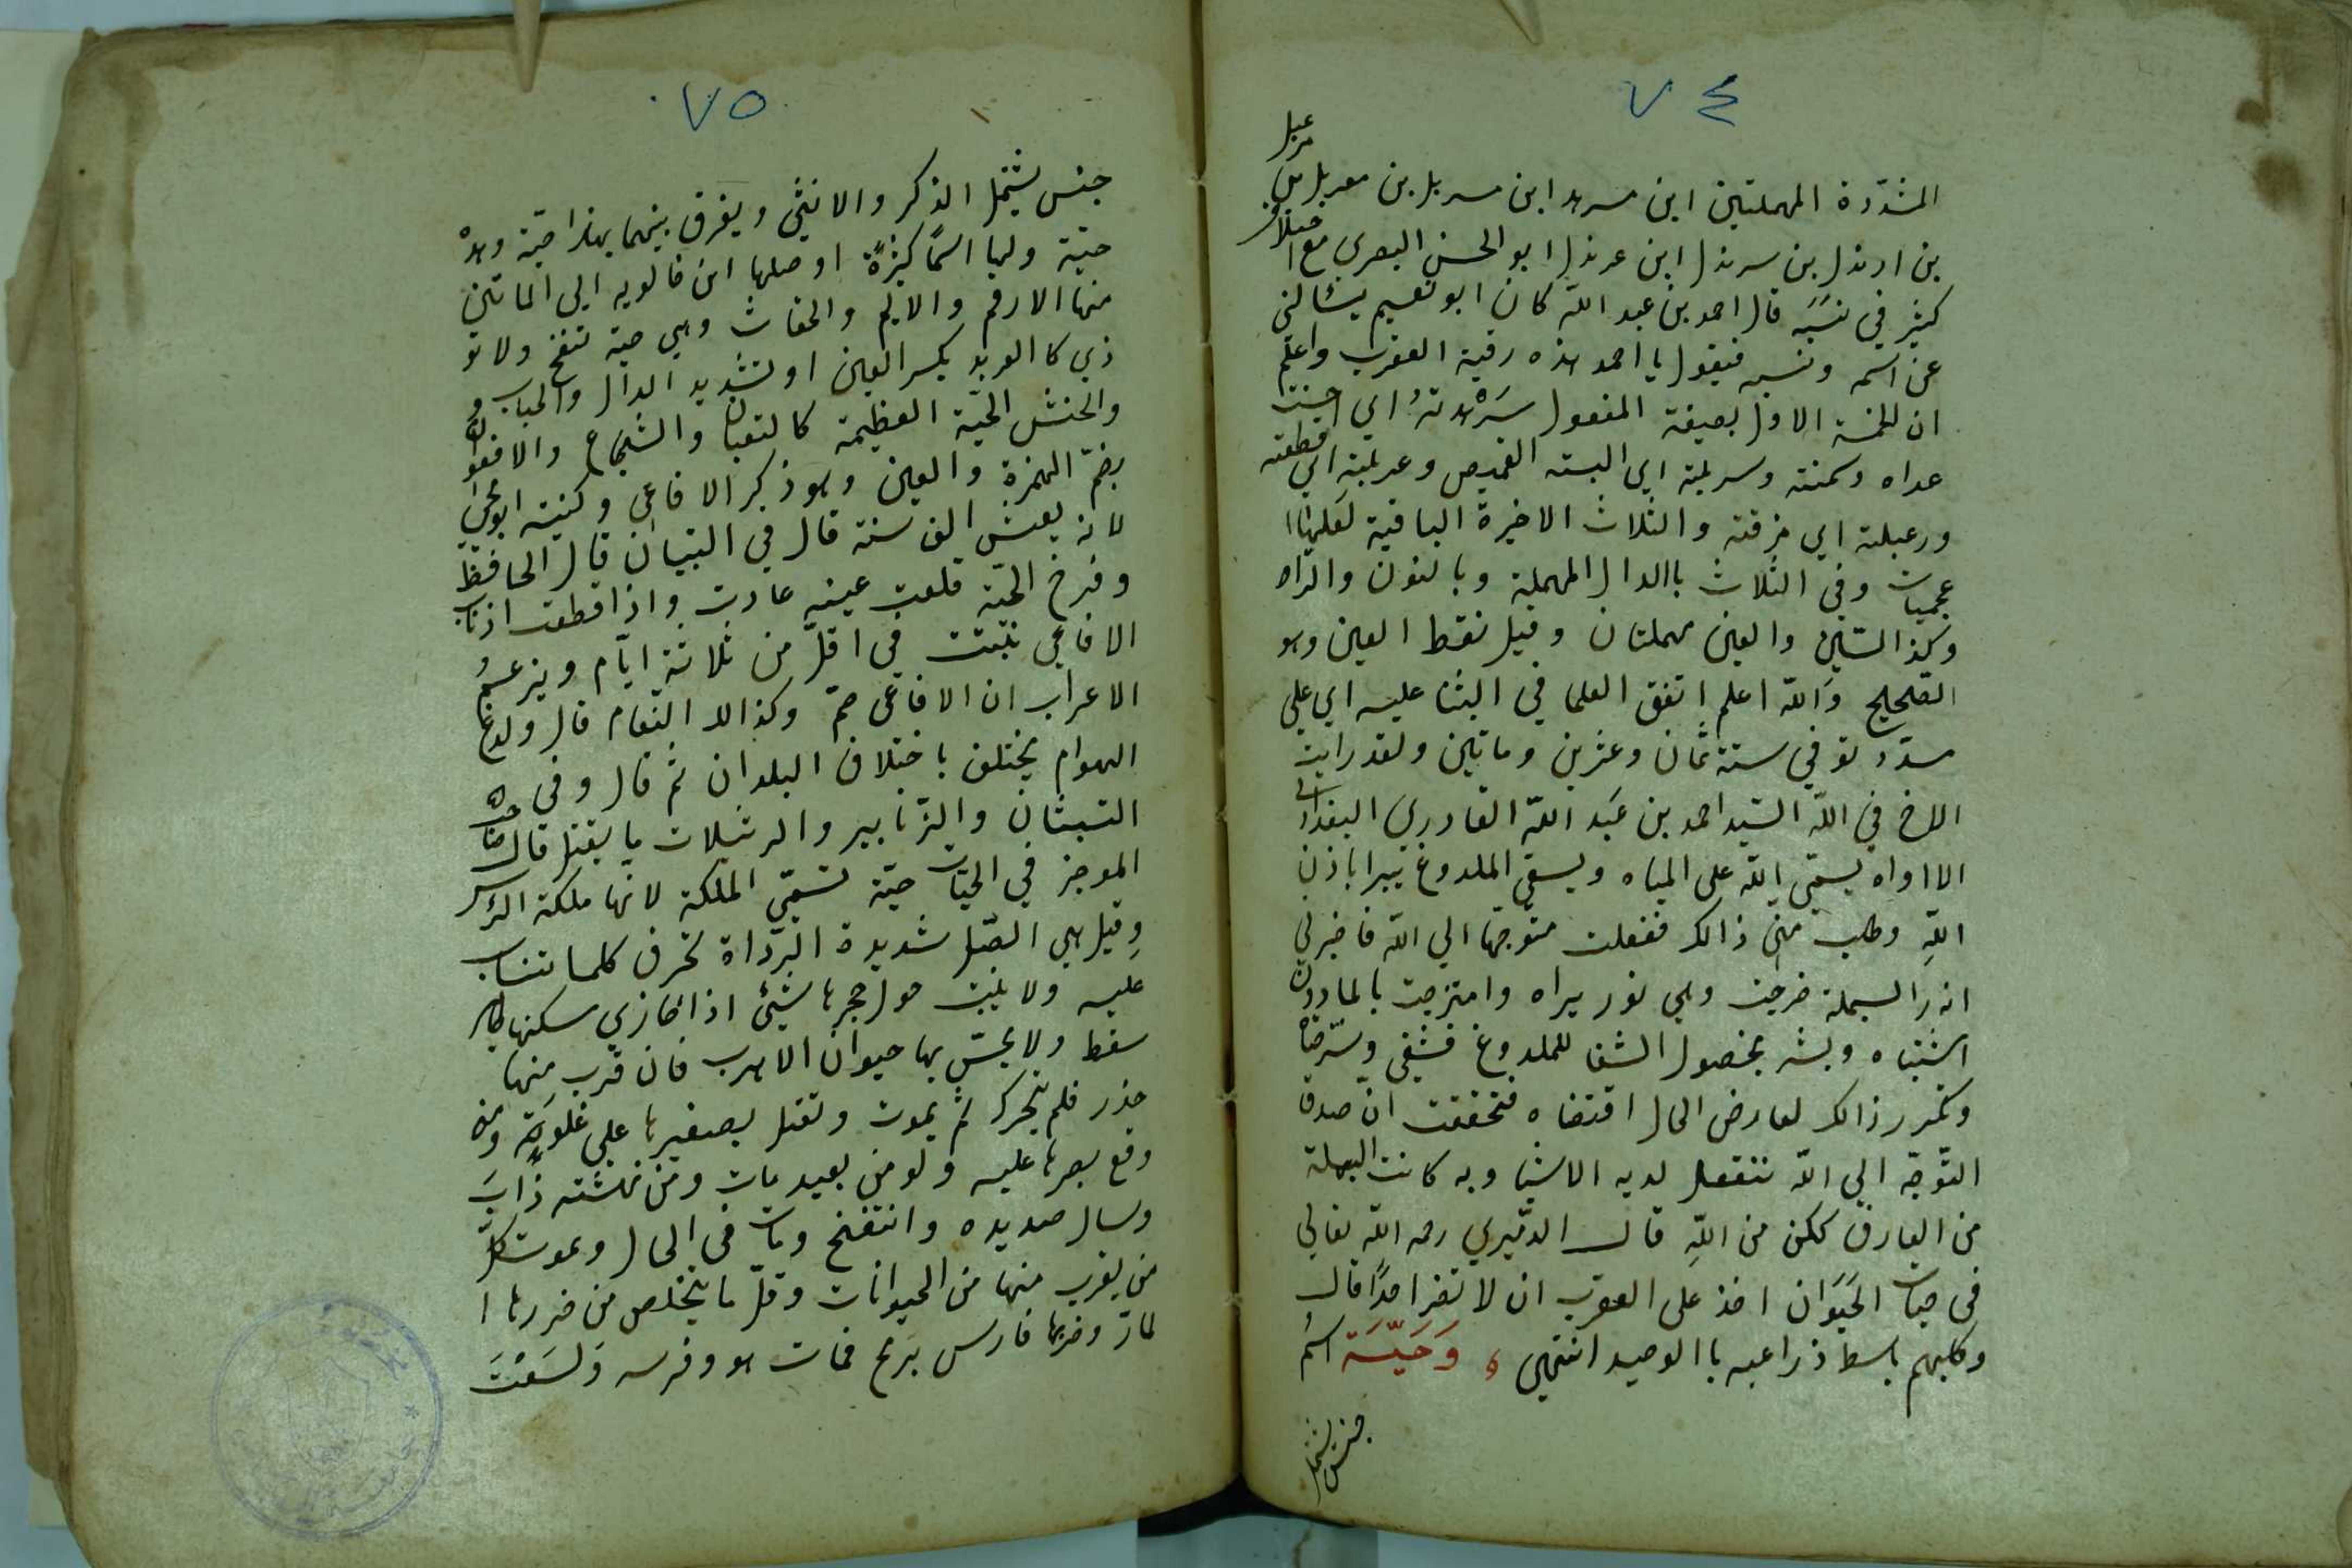 ٧٤
المشدّدة المهملتين ابن مسرهد ابن مسربل بن مغربل بن مرعبل
بن ارندل بن سرندل ابن عرندل ابو الحسن البصري مع اختلاف
كثير في نسبه قال احمد بن عبد الله كان ابو نعيم يسئالني
عن اسمه ونسبه فيقول يا احمد هذه رقية العقرب واعلم
ان للخمسة الاول بصيغة المفعول سَرْهدتهُ اي احسنت
غداه وسمنته وسربلته اي البسته القميص وغربلته اي قطعته
ورعبلته اي مزقته والثلاث الاخيرة الباقية لعلها
عجميات وفي الثلاث باالدال المهملة وبالنون والراء
وكذا السّين والعين مهملتان وقيل نقط العين وهو
الصحيح والله اعلم اتفق العلما في الثنا عليه اي على
مسدّد توفي سنة ثمان وعشرين وماتين ولقد رايت
الاخ في الله السّيد احمد بن عَبد الله القادري البغدادي
الاواه يسمّي الله على المياه ويسقي الملدوغ يبرا باذن
اللهِ وطلب منّي ذالك ففعلت متوجّها الي الله فاخبرني
انه را البسملة خرجت وهي نور يراه وامتزجت بالما دون
اشتباه وبشر بحصول الشفا للملدوغ فشفي وسّرضاه
وتكرر ذالك لعارض الحال اقتضاه فتحققت انّ صدق
التوّجّه الي الله تنفعل لديه الاشيا وبه كانت البسملة
من العارف ككن من اللهِ قال الدّميري رحمه الله تعالي
في حيات الحَيَوَان اخذ على العقرب ان لا تضر احدًا قال
وكلبهم باسط ذراعيه باالوصيد انتهي وَحَيّــَـة اسمُ
جنس يشمل
٧٥
جنس يشمل الذكر والانثي ويفرق بينهما بهذا حيّة وهذه
حيّة ولها اسمًا كثيرةً اوصلها ابن خالويه الي الماتين
منها الارقم والايم والحفاث وهي حية تنفخ ولا تو
ذي كا العربد بكسر العين او تشديد الدال والحباب و
والحنش الحيّة العظيمة كالثعبان والشجاع والافعوان
بضمّ الهمزة والعين وهو ذكر الافاعي وكنيته ابو يحي
لانه يعيش الف سنة قال في التبيان قال الحافظ
وفرخ الحيّة قلعت عينيه عادت واذا قطعت اذناب
الافاعي نبتت في اقلّ من ثلاثة ايّام ويزعمُ
الاعراب ان الافاعي صمّ وكذالك النّعام قال ولدغ
الهوام يختلف باختلاف البلدان ثم قال وفي
التبيثان والزّنابير والرتيلات ما يقتل قال صاحب
الموجز في الحيّات حيّة تسمّي الملكة لانّها ملكة الرّاس
وقيل هي الصّل شديدة الرّداة تحرق كلما تنساب
عليه ولا ينبت حول حجرها شيئ اذا حازي سكنها طير
سقط ولا يحسّ بها حيوان الا هرب فان قرب منها
خدر فلم يتحرك ثم يموت وتقتل بصفيرها على غلوة ومن
وقع بصرها عليه ولو من بعيد مات ومن نهشته ذابَ
وسال صديده وانتفخ ومات في الحال ويموت كلّ
من يقرب منها من الحيوانات وقلّ ما يتخلص من ضررها ا
لمارّ وضربها فارس برمح فمات هو وفرسه وَلسَعْت